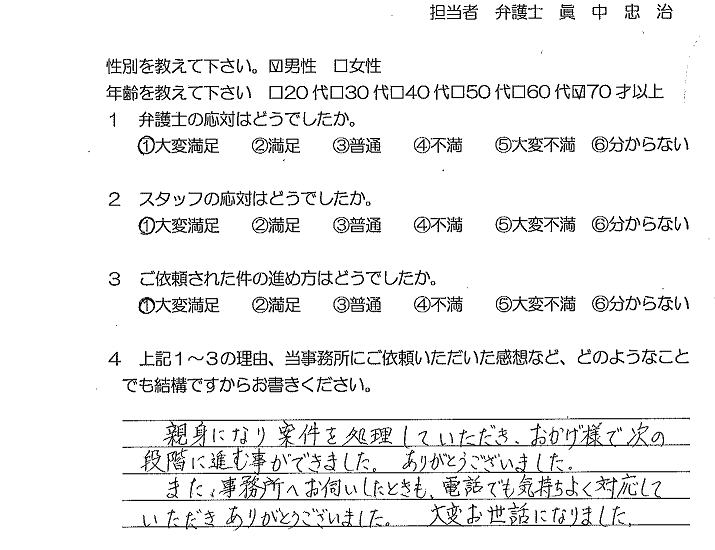 担当者 弁護士 眞 中 忠 治
性別を教えて下さい。☑男性 □女性
年齢を教えて下さい □20代□30代□40代□50代□60代☑70才以上
1 弁護士の応対はどうでしたか。
①大変満足 ②満足 ③普通 ④不満 ⑤大変不満 ⑥分からない
2 スタッフの応対はどうでしたか。
①大変満足 ②満足 ③普通 ④不満 ⑤大変不満 ⑥分からない
3 ご依頼された件の進め方はどうでしたか。
①大変満足 ②満足 ③普通 ④不満 ⑤大変不満 ⑥分からない
4 上記1～3の理由、当事務所にご依頼いただいた感想など、どのようなこと
でも結構ですからお書きください。
親身になり案件を処理していただき、おかげ様で次の
段階に進む事ができました。ありがとうございました。
また、事務所へお伺いしたときも、電話でも気持ちよく対応して
いただきありがとうございました。 大変お世話になりました。